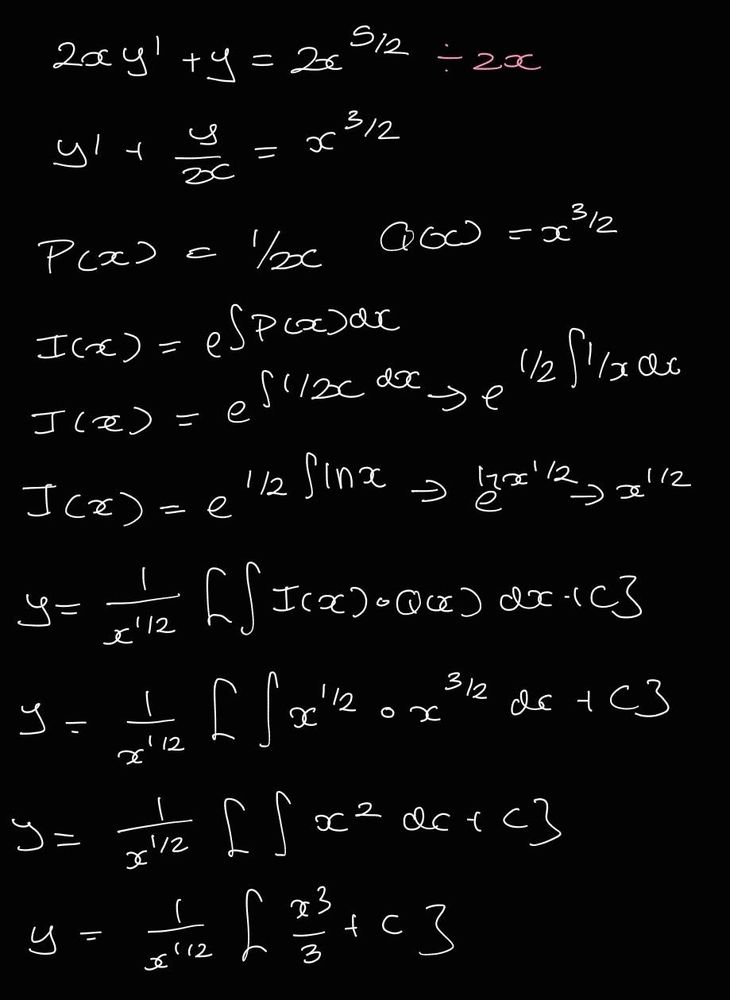 2xy' + y = 2x^{5/2} ÷ 2x
y' + y/2x = x^{3/2}
P(x) = 1/2x Q(x) = x^{3/2}
I(x) = e^{∫P(x)dx}
I(x) = e^{∫1/2x dx} → e^{1/2 ∫1/x dx}
I(x) = e^{1/2 ∫lnx} → e^{lnx^{1/2}} → x^{1/2}
y = 1/x^{1/2} [∫I(x)·Q(x) dx + C}
y = 1/x^{1/2} [∫x^{1/2} · x^{3/2} dx + C}
y = 1/x^{1/2} [∫x² dx + C}
y = 1/x^{1/2} [x³/3 + C}